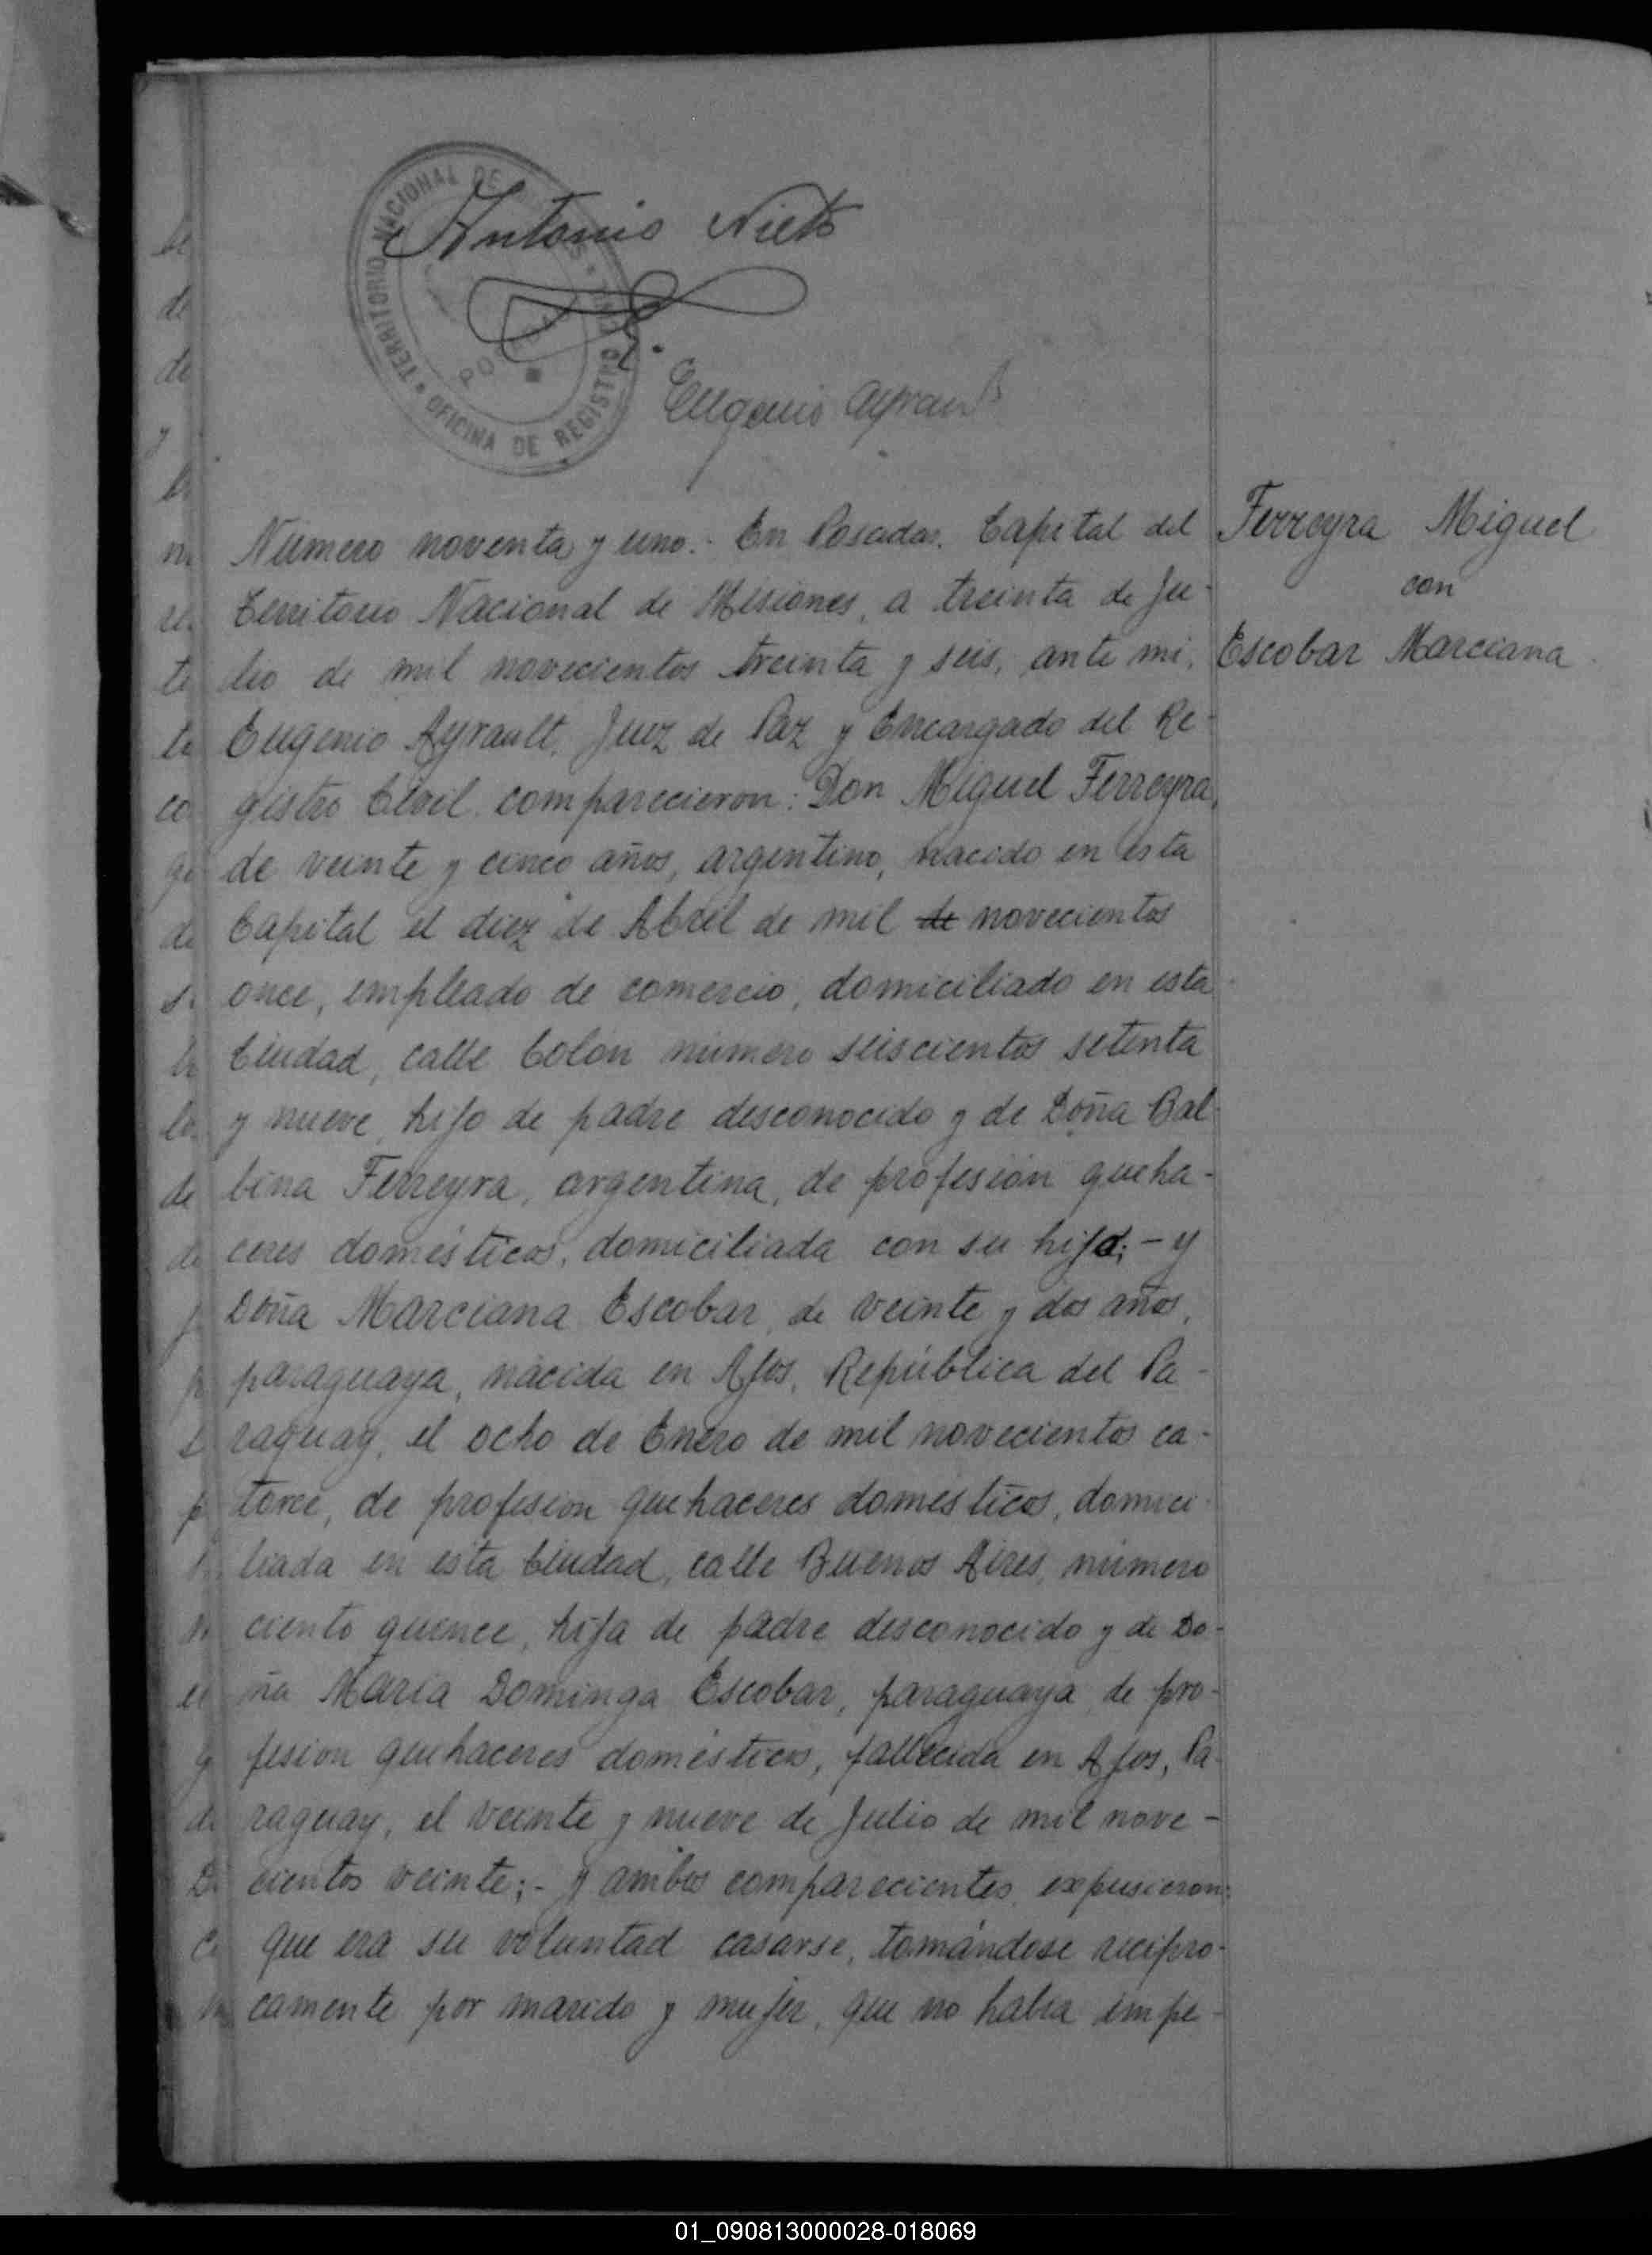 TERRITORIO NACIONAL DE
OFICINA DE REGISTRO
Antonio Nieto
Eugenio Ayrault
Ferreyra Miguel
con
Escobar Marciana
Número noventa y uno.- En Posadas, Capital del
Territorio Nacional de Misiones, a treinta de Ju-
lio de mil novecientos treinta y seis, ante mi,
Eugenio Ayrault, Juez de Paz y Encargado del Re-
gistro Civil, comparecieron: Don Miguel Ferreyra,
de veinte y cinco años, argentino, nacido en esta
Capital el diez de Abril de mil de novecientos
once, empleado de comercio, domiciliado en esta
Ciudad, calle Colón número seiscientos setenta
y nueve, hijo de padre desconocido y de Doña Bal-
bina Ferreyra, argentina, de profesión queha-
ceres domésticos, domiciliada con su hijo; - y
Doña Marciana Escobar, de veinte y dos años,
paraguaya, nacida en Ajos, República del Pa-
raguay, el ocho de Enero de mil novecientos ca-
torce, de profesión quehaceres domésticos, domici-
liada en esta Ciudad, calle Buenos Aires, número
ciento quince, hija de padre desconocido y de Do-
ña María Dominga Escobar, paraguaya, de pro-
fesión quehaceres domésticos, fallecida en Ajos, Pa-
raguay, el veinte y nueve de Julio de mil nove-
cientos veinte; - y ambos comparecientes expusieron:
que era su voluntad casarse, tomándose recípro-
camente por marido y mujer, que no había impe-
01_090813000028-018069